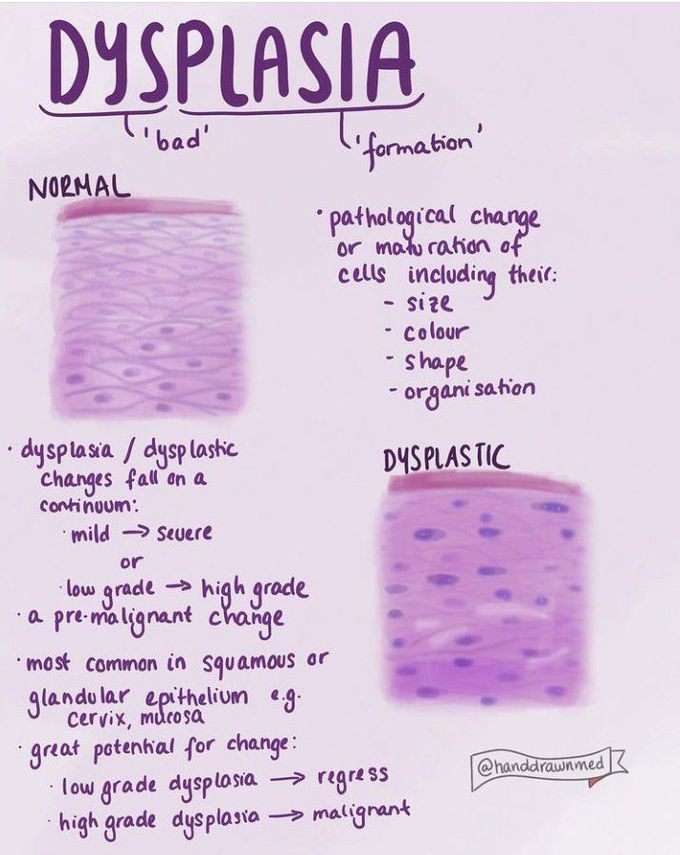 DYSPLASIA
'bad'
'formation'
NORMAL
· pathological change
or maturation of
cells including their:
- size
- colour
- shape
- organisation
· dysplasia / dysplastic
changes fall on a
continuum:
· mild → severe
or
· low grade → high grade
· a pre-malignant change
· most common in squamous or
glandular epithelium e.g.
cervix, mucosa
· great potential for change:
· low grade dysplasia → regress
· high grade dysplasia → malignant
DYSPLASTIC
@handdrawnmed